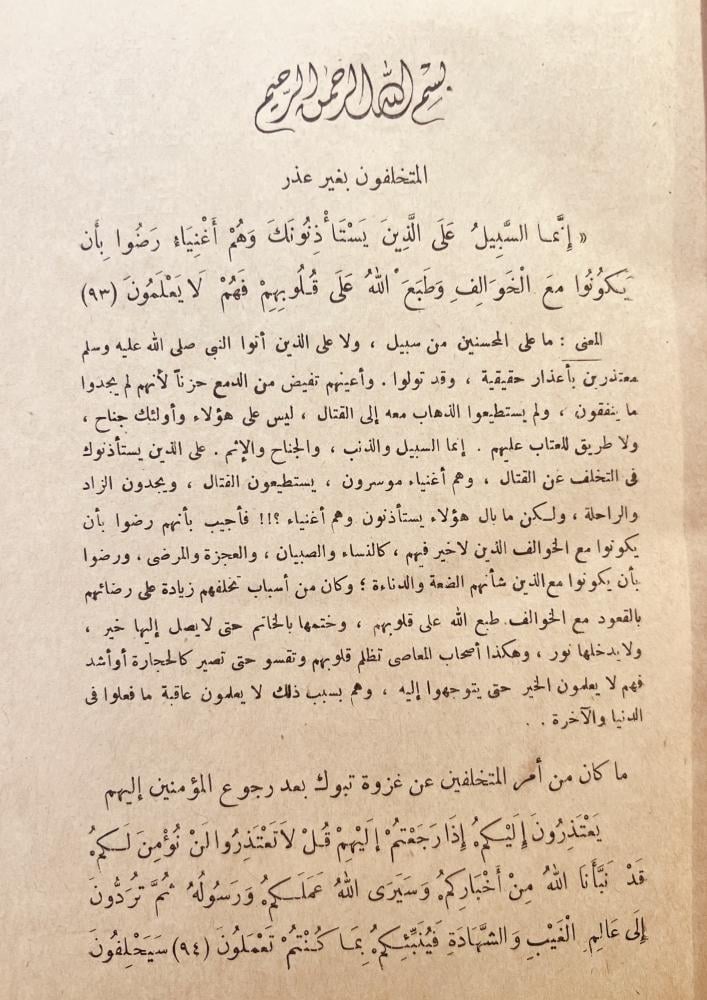 بِسْمِ اللهِ الرحمن الرحيم
المتخلفون بغير عذر
« إِنَّمَا السَّبِيلُ عَلَى الَّذِينَ يَسْتَأْذِنُونَكَ وَهُمْ أَغْنِيَاءُ رَضُوا بِأَن
يَكُونُوا مَعَ الْخَوَالِفِ وَطَبَعَ اللهُ عَلَى قُلُوبِهِمْ فَهُمْ لَا يَعْلَمُونَ (٩٣)
المعنى : ما على المحسنين من سبيل ، ولا على الذين أتوا النبى صلى الله عليه وسلم
معتذرين بأعذار حقيقية ، وقد تولوا . وأعينهم تفيض من الدمع حزناً لأنهم لم يجدوا
ما ينفقون ، ولم يستطيعوا الذهاب معه إلى القتال ، ليس على هؤلاء وأولئك جناح ،
ولا طريق للعتاب عليهم . إنما السبيل والذنب ، والجناح والإثم . على الذين يستأذنوك
فى التخلف عن القتال ، وهم أغنياء موسرون ، يستطيعون القتال ، ويجدون الزاد
والراحلة ، ولكن ما بال هؤلاء يستأذنون وهم أغنياء ؟!! فأجيب بأنهم رضوا بأن
يكونوا مع الخوالف الذين لا خير فيهم ، كالنساء والصبيان ، والعجزة والمرضى . ورضوا
بأن يكونوا مع الذين شأنهم الضعة والدناءة ؛ وكان من أسباب تخلفهم زيادة على رضائهم
بالقعود مع الخوالف . طبع الله على قلوبهم ، وختمها بالخاتم حتى لا يصل إليها خير ،
ولا يدخلها نور ، وهكذا أصحاب المعاصى تظلم قلوبهم وتقسو حتى تصير كالحجارة أو أشد
فهم لا يعلمون الخير حتى يتوجهوا إليه ، وهم بسبب ذلك لا يعلمون عاقبة ما فعلوا فى
الدنيا والآخرة . .
ما كان من أمر المتخلفين عن غزوة تبوك بعد رجوع المؤمنين إليهم
يَعْتَذِرُونَ إِلَيْكُمْ إِذَا رَجَعْتُمْ إِلَيْهِمْ قُلْ لَا تَعْتَذِرُوا لَنْ نُؤْمِنَ لَكُمْ
قَدْ نَبَّأَنَا اللهُ مِنْ أَخْبَارِكُمْ وَسَيَرَى اللهُ عَمَلَكُمْ وَرَسُولُهُ ثُمَّ تُرَدُّونَ
إِلَى عَالِمِ الْغَيْبِ وَالشَّهَادَةِ فَيُنَبِّئُكُمْ بِمَا كُنْتُمْ تَعْمَلُونَ (٩٤) سَيَحْلِفُونَ